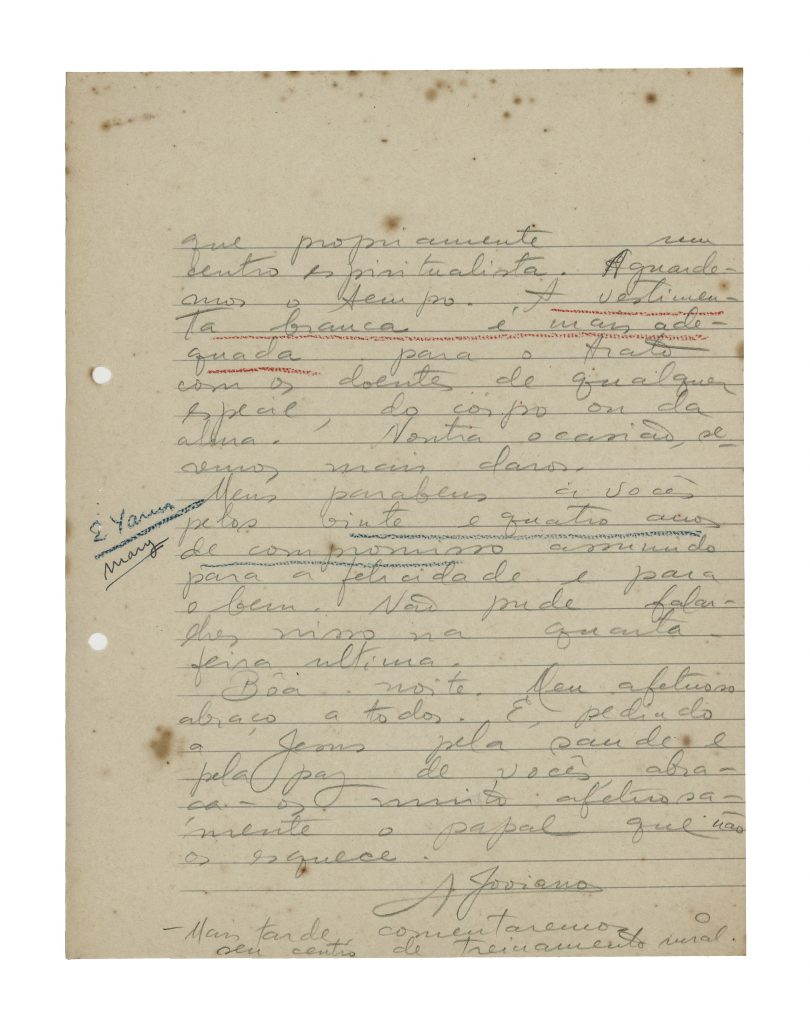 que propriamente um
centro espiritualista. Aguarde-
mos o tempo. A vestimen-
ta branca é mais ade-
quada para o trato
com os doentes de qualquer
especie, do corpo ou da
alma. Noutra ocasião, se-
remos mais claros.
Meus parabens á vocês
pelos vinte e quatro anos
de compromisso assumido
para a felicidade e para
o bem. Não pude falar-
lhes nisso na quarta-
feira ultima.
Bôa noite. Meu afetuoso
abraço a todos. E, pedindo
a Jesus pela saude e
pela paz de vocês, abra-
ça-os muito afetuosa-
mente o papai que não
os esquece.
A Joviano
- Mais tarde comentaremos o
seu centro de treinamento rural.
E
Mary